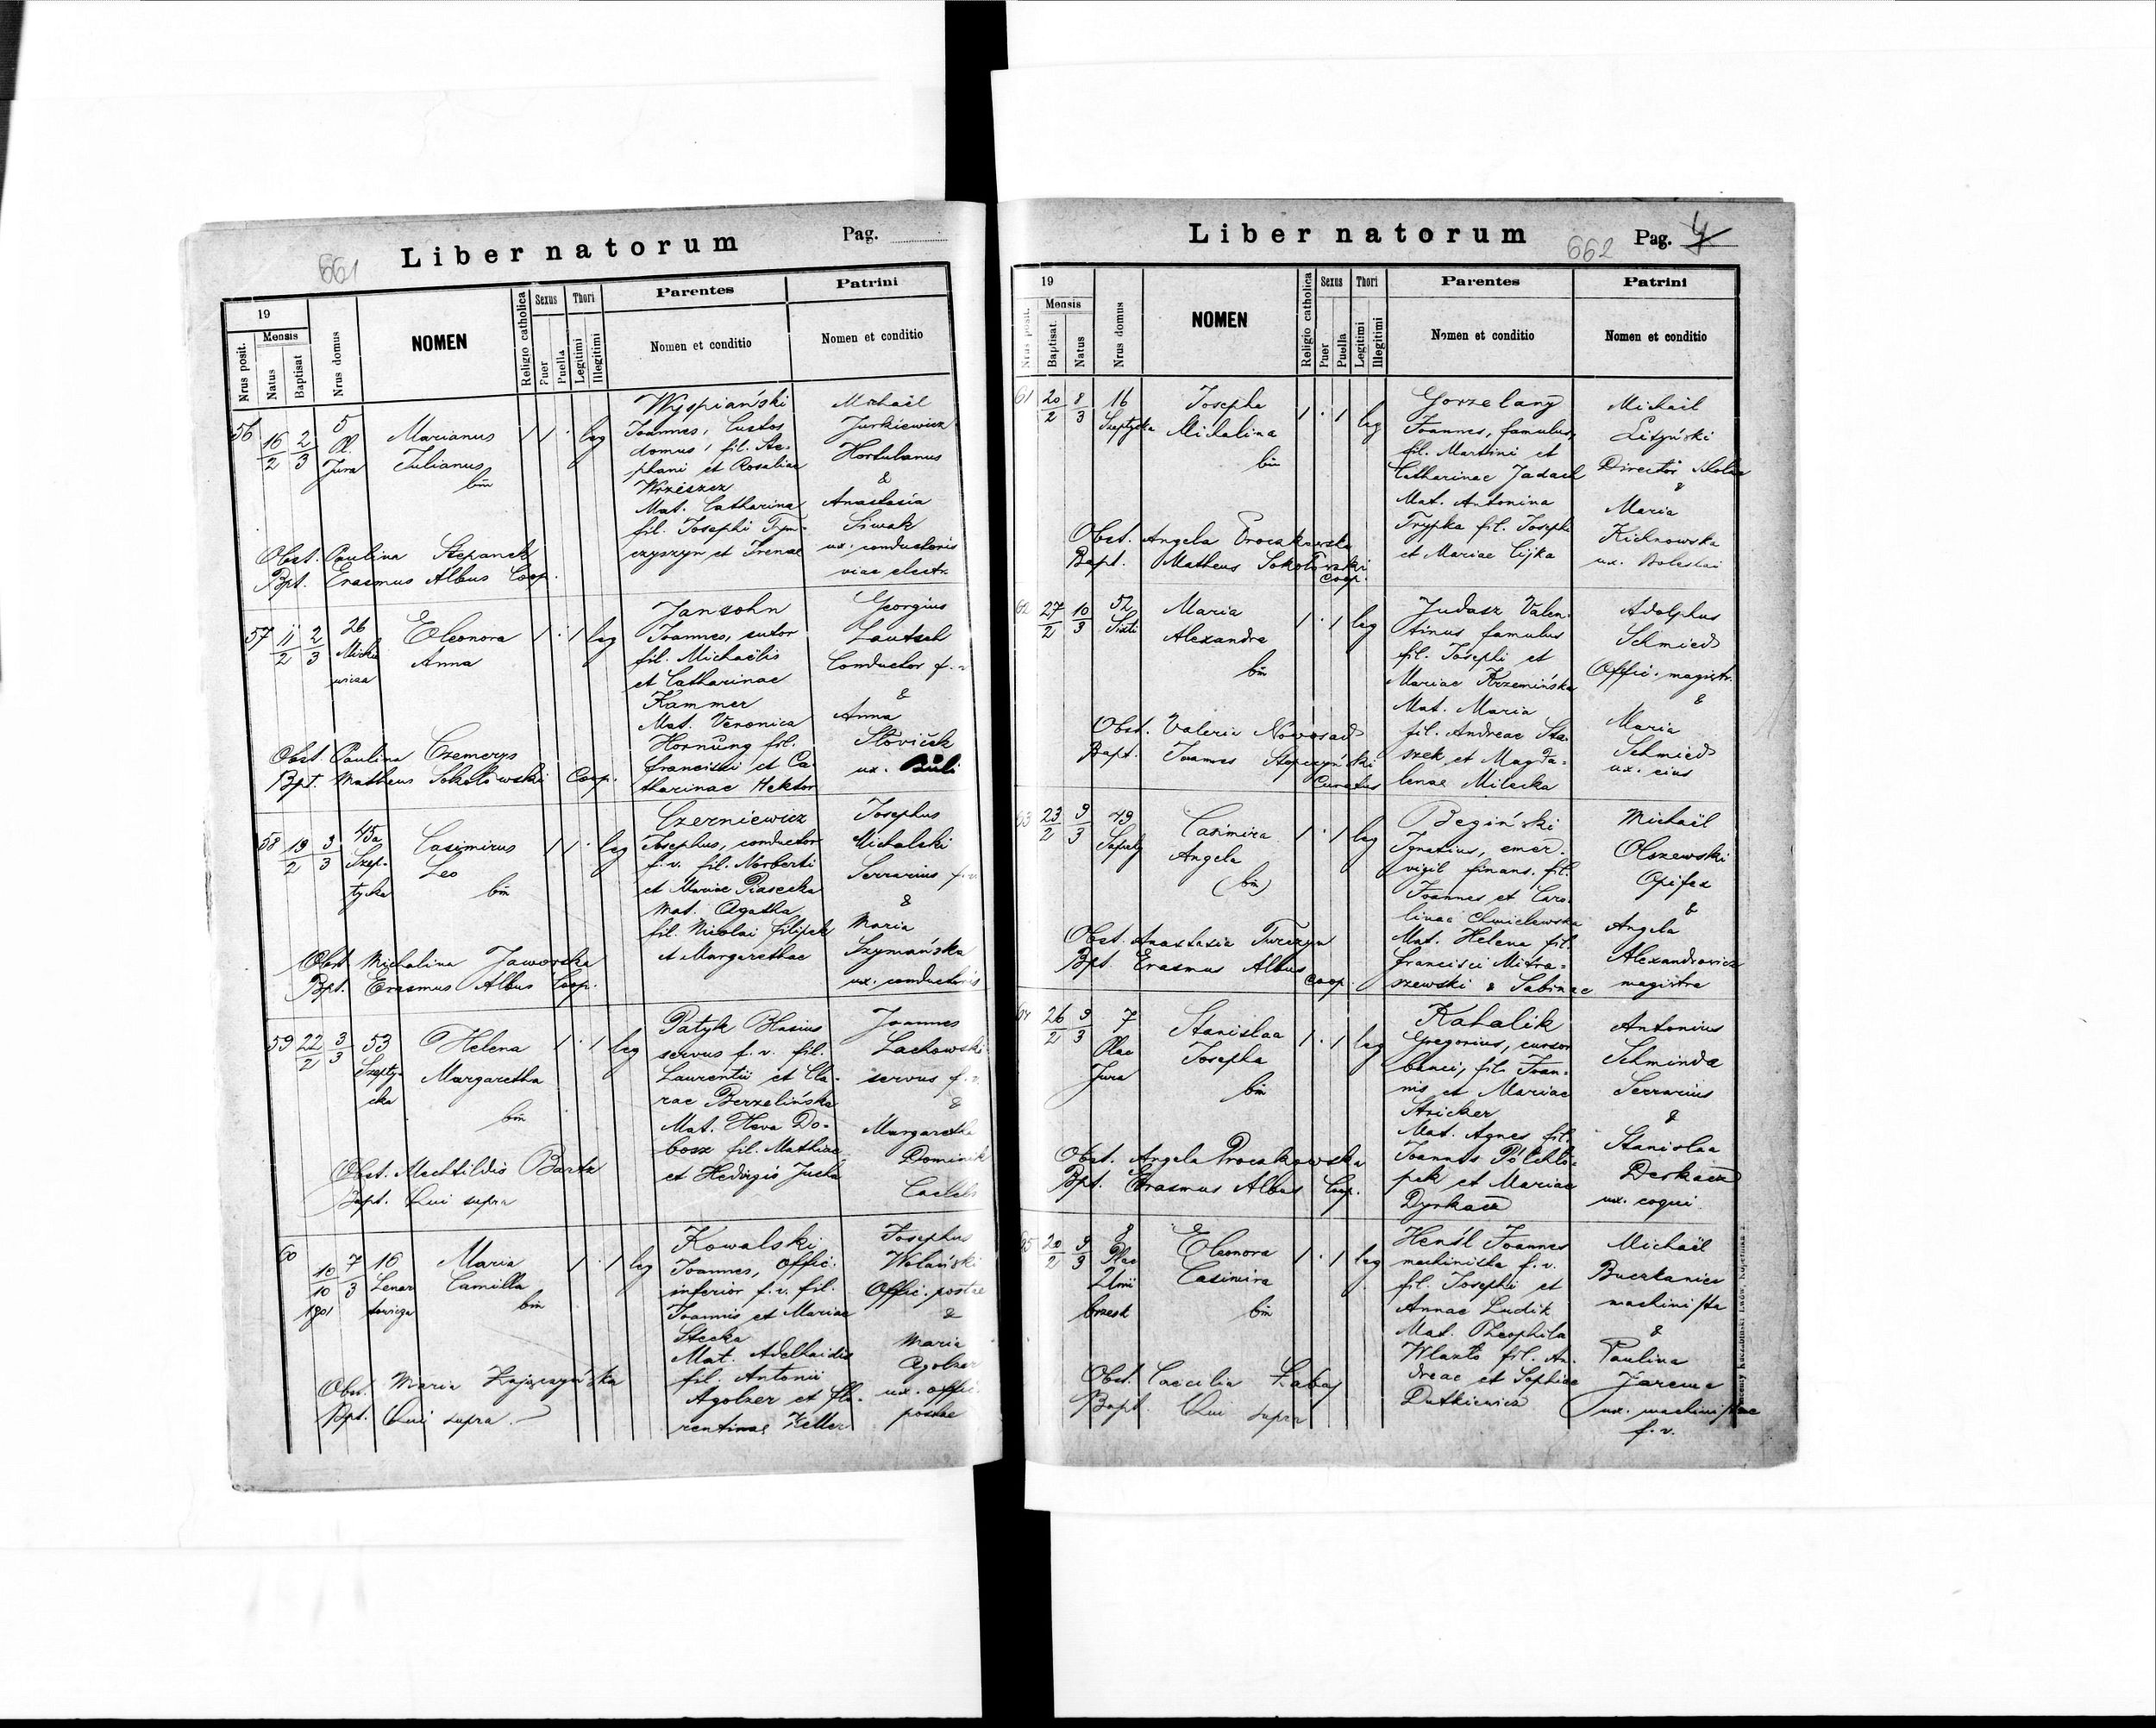 661
Liber natorum
Pag.
19
Mensis
Nrus posit.
Natus
Baptisat
Nrus domus
NOMEN
Religio catholica
Sexus
Puer
Puella
Thori
Legitimi
Illegitimi
Parentes
Nomen et conditio
Patrini
Nomen et conditio
56
16/2
2/3
5
Pl.
Jura
Marianus
Julianus
bin
1 1 . leg
Wyspiański
Joannes, Custos
domus, fil. Ste-
phani et Rosaliae
Wrzeszcz
Mat. Catharina
fil. Josephi Tym-
czyszyn et Irenae
Michaël
Jurkiewicz
Hortulanus
&
Anastasia
Siwak
ux. conductoris
viae electr.
Obst. Paulina Stepanek
Bpt. Erasmus Albus Coop.
57
11/2
2/3
26
Mickie
wicza
Eleonora
Anna
1 . 1 leg
Jansohn
Joannes, sutor
fil. Michaëlis
et Catharinae
Kammer
Mat. Veronica
Hornung fil.
Francisci et Ca-
tharinae Hektor
Georgius
Lautsch
Conductor f. v.
&
Anna
Sloviček
ux.
Obst. Paulina Czemerys
Bpt. Matheus Sokołowski Coop.
58
19/2
3/3
45a
Szep-
tycka
Casimirus
Leo
bin
1 1 . leg
Czerniewicz
Josephus, conductor
f. v. fil. Norberti
et Mariae Piasecka
Mat. Agatha
fil. Nicolai Filipek
et Margarethae
Josephus
Michalski
Serrarius f. v.
&
Maria
Szymańska
ux. conductoris
Obst. Michalina Jaworska
Bpt. Erasmus Albus Coop.
59
22/2
3/3
53
Szepty-
cka
Helena
Margaretha
bin
1 . 1 leg
Patyk Blasius
servus f. v. fil.
Laurentii et Cla-
rae Berzelińska
Mat. Heva Do-
bosz fil. Mathiae
et Hedvigis Jucha
Joannes
Lachowski
servus f. v.
&
Margaretha
Dominik
Caelebs
Obst. Mechtildis Bartz
Bapt. Qui supra
60
10/10
1901
7/3
16
Lenar
towicza
Maria
Camilla
bin
1 . 1 leg
Kowalski
Joannes, Offic.
inferior f. v. fil.
Joannis et Mariae
Stecka
Mat. Adelhaidis
fil. Antonii
Agolzer et Flo-
rentinae Keller
Josephus
Wolański
Offic. postae
&
Maria
Agolzer
ux. offic.
postae
Obst. Maria Zajączyńska
Bpt. Qui supra
Liber natorum
662
Pag. 4
19
Mensis
Nrus posit.
Baptisat.
Natus
Nrus domus
NOMEN
Religio catholica
Sexus
Puer
Puella
Thori
Legitimi
Illegitimi
Parentes
Nomen et conditio
Patrini
Nomen et conditio
61
20/2
8/3
16
Szeptycka
Josepha
Michalina
bin
1 . 1 leg
Gorzelany
Joannes, famulus,
fil. Martini et
Catharinae Jadach
Mat. Antonina
Trypka fil. Josephi
et Mariae Cijka
Michaël
Lityński
Director scholae
&
Maria
Kichnowska
ux. Boleslai
Obst. Angela Proczkowska
Bapt. Matheus Sokołowski
Coop.
62
27/2
10/3
52
Sixti
Maria
Alexandra
bin
1 . 1 leg
Judasz Valen-
tinus famulus
fil. Josephi et
Mariae Krzemińska
Mat. Maria
fil. Andreae Sta-
szek et Magda-
lenae Milecka
Adolphus
Schmied
Offic. magistr.
&
Maria
Schmied
ux. eius
Obst. Valeria Nowosad
Bapt. Joannes Stopczyński
Curatus
63
23/2
9/3
49
Sapiehy
Casimira
Angela
(bin)
1 . 1 leg
Begiński
Ignatius, emer.
vigil finans. fil.
Joannes et Caro-
linae Chmielewska
Mat. Helena fil.
Francisci Mitra-
szewski & Sabinae
Michaël
Olszewski
Opifex
&
Angela
Alexandrowicz
magistra
Obst. Anastasia Turczyn
Bpt. Erasmus Albus
Coop.
64
26/2
9/3
7
Plac
Jura
Stanislaa
Josepha
bin
1 . 1 leg
Kahalik
Gregorius, cursor
banci, fil. Joan-
nis et Mariae
Stricker
Mat. Agnes fil.
Joannis Półchło-
pek et Mariae
Dyrkacz
Antonius
Schminda
Serrarius
&
Stanislaa
Derkacz
ux. coqui
Obst. Angela Proczkowska
Bpt. Erasmus Albus Coop.
65
20/2
9/3
8
Plac
Unii
brzesk
Eleonora
Casimira
bin
1 . 1 leg
Henśl Joannes
machinista f. v.
fil. Josephi et
Annae Ludik
Mat. Theophila
Wlazło fil. An-
dreae et Sophiae
Dutkiewicz
Michaël
Buczkaniec
machinista
&
Paulina
Jarema
ux. machinistae
f. v.
Obst. Caecilia Łabaj
Bapt. Qui supra